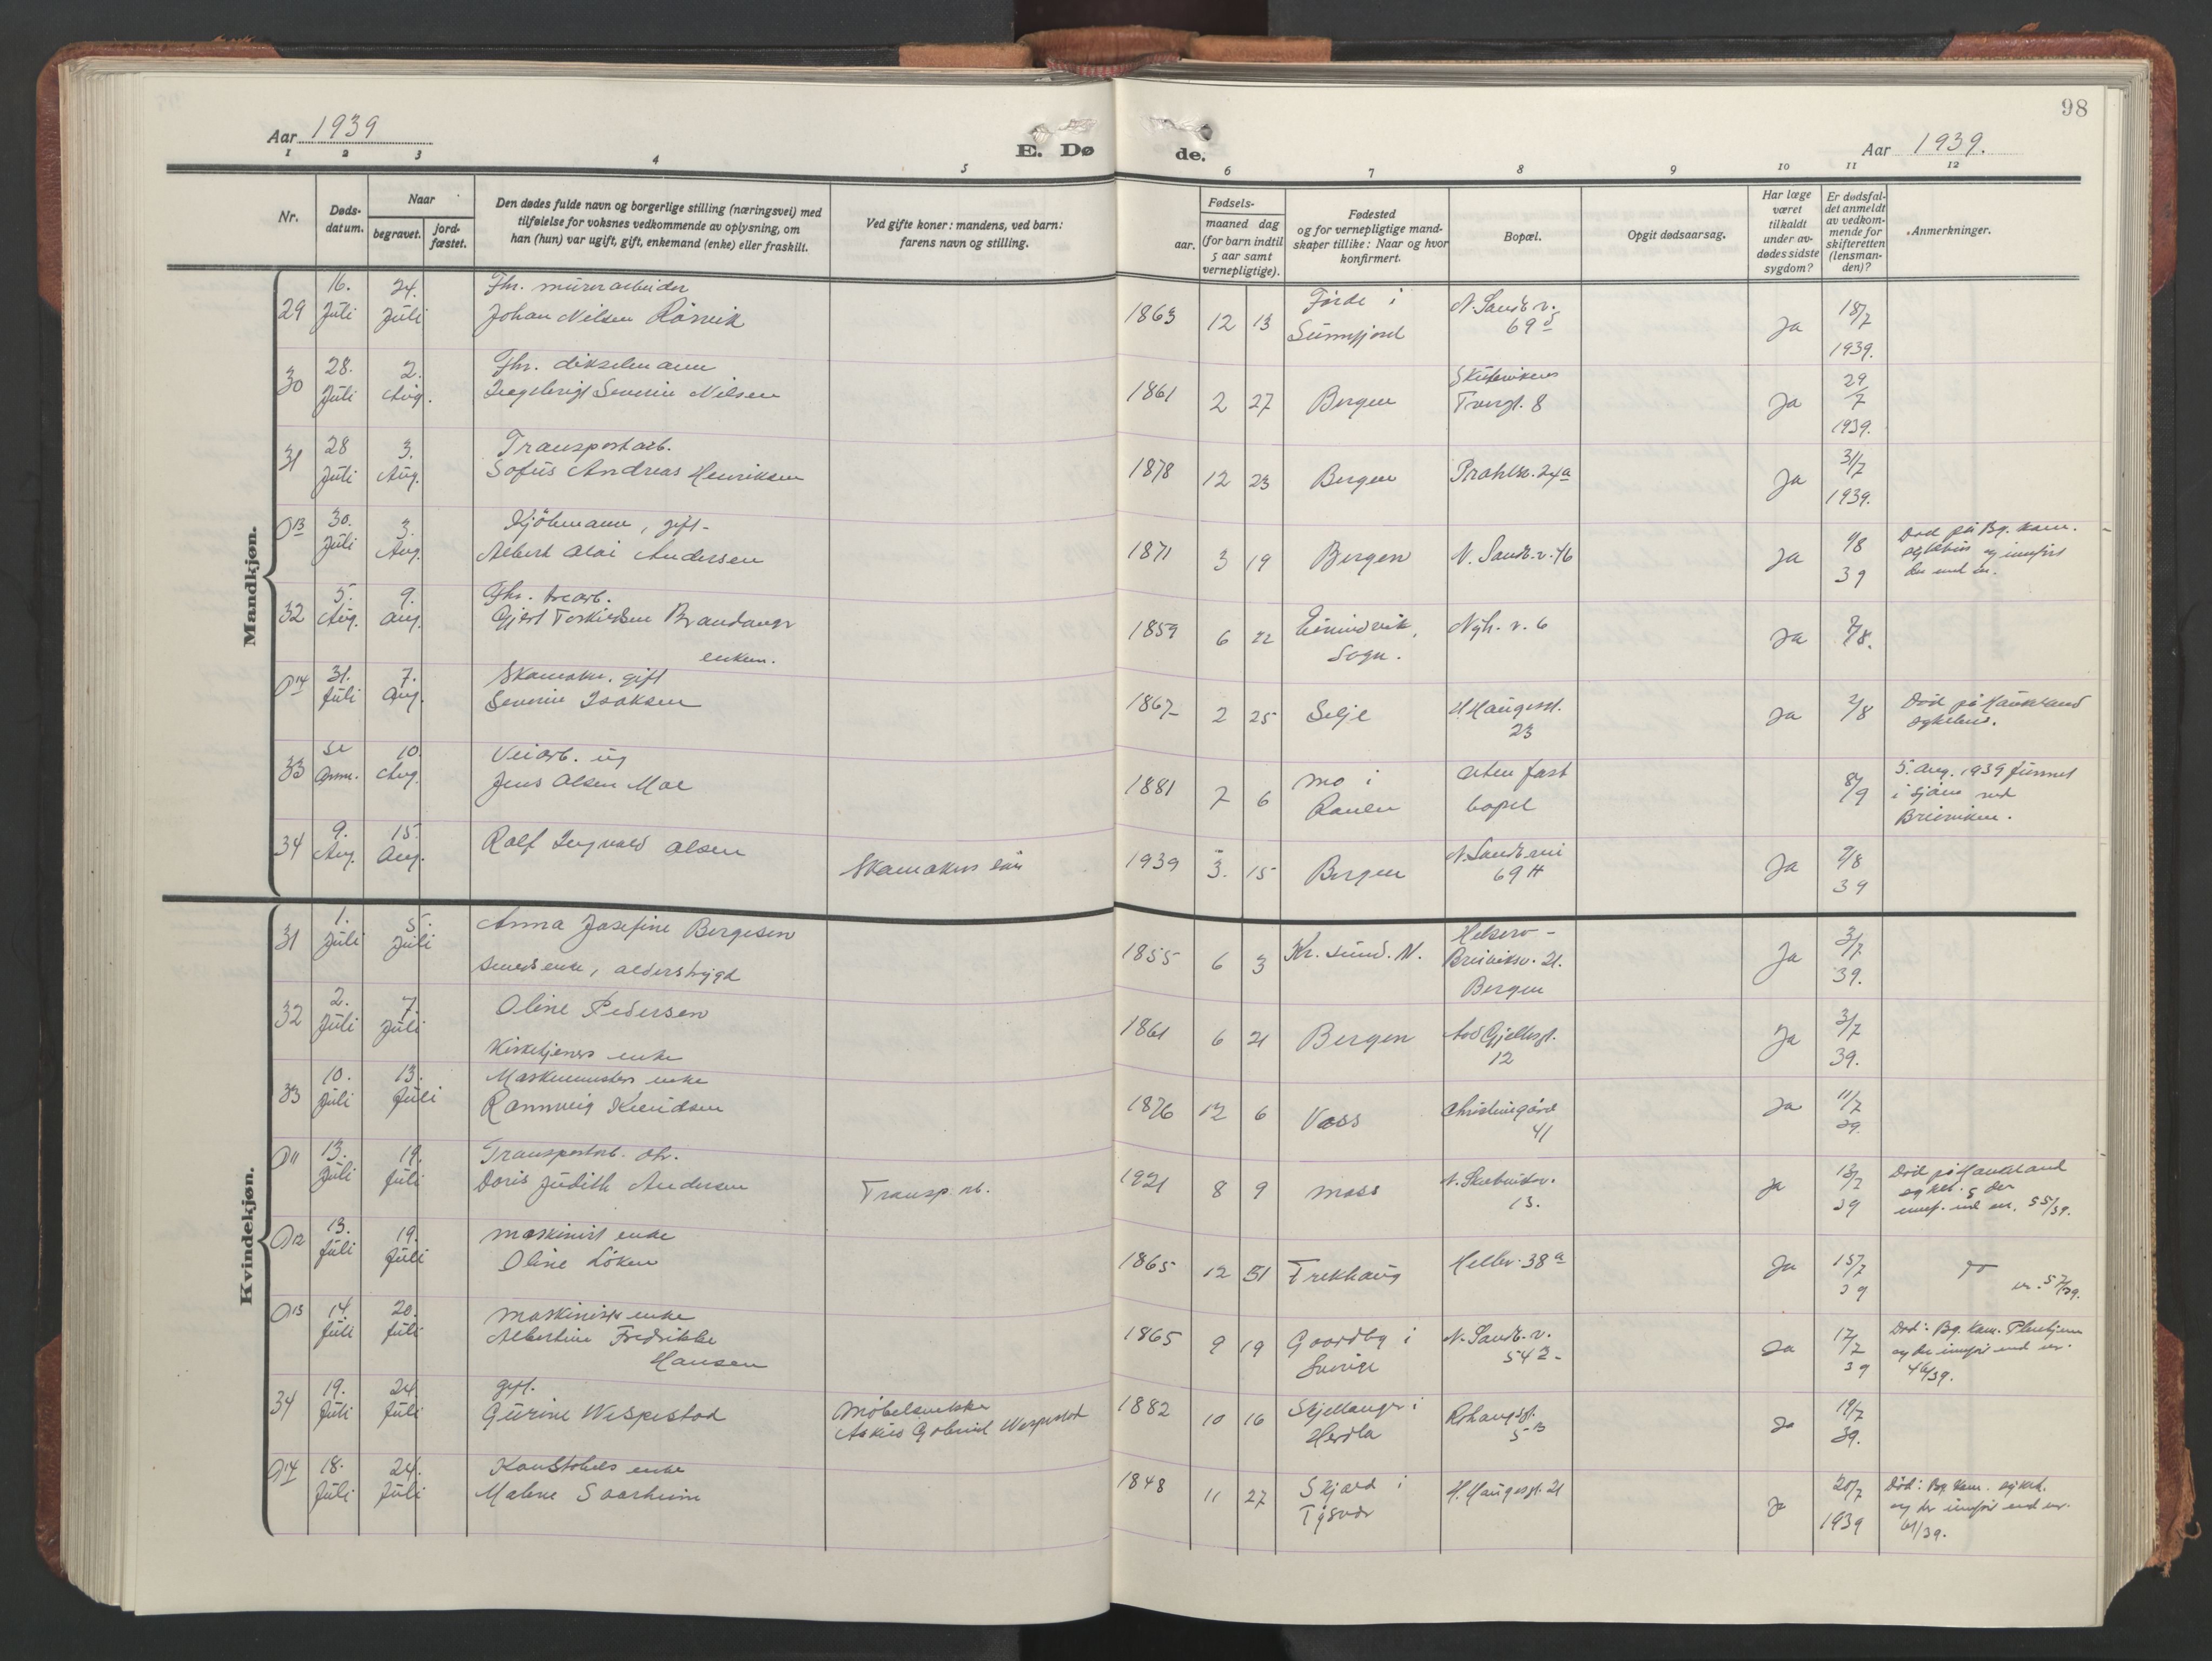 98
Aar 1939
E. Dø de.
Aar 1939.
1 2 3 4 5 6 7 8 9 10 11 12
Nr.
Døds-
datum.
Naar
begravet.
jord-
fæstet.
Den dødes fulde navn og borgerlige stilling (næringsvei) med
tilføielse for voksnes vedkommende av oplysning, om
han (hun) var ugift, gift, enkemand (enke) eller fraskilt.
Ved gifte koner: mandens, ved barn:
farens navn og stilling.
Fødsels-
aar.
maaned dag
(for barn indtil
5 aar samt
vernepligtige).
Fødested
og for vernepligtige mand-
skaper tillike: Naar og hvor
konfirmert.
Bopæl.
Opgit dødsaarsag.
Har læge
været
tilkaldt
under av-
dødes sidste
sygdom?
Er dødsfal-
det anmeldt
av vedkom-
mende for
skifteretten
(lensman-
den)?
Anmerkninger.
Mandkjøn.
29 16. Juli 24. Juli
Fhr. murerarbeider
Johan Nilsen Rörvik
1863 12 13 Förde i
Sunnfjord
N. Sandv. v.
69 Ja 18/7
1939.
30 28. Juli 2. Aug.
Fhr. dikselmann
Ingebrigt Severin Nilsen
1861 2 27 Bergen
Skutevikens
Tverrgt. 8 Ja 29/7
1939.
31 28 Juli 3. Aug.
Transportarb.
Sofus Andreas Henriksen
1878 12 23 Bergen Prahlsv. 24a Ja 31/7
1939.
O13 30. Juli 3. Aug.
Sjömann, gift
Albert Olai Andersen
1871 3 19 Bergen N. Sandv. v. 46 Ja 1/8
39
Död på Bg. kom.
sykehus og innfört
der
32 5. Aug. 9. Aug.
Fhr. trearb.
Gjert Torkildsen Brandanger
enkem.
1859 6 22 Eivindvik,
Sogn.
Nyh. v. 6 Ja 7/8.
O14 31. Juli 7. Aug.
Skomakr. gift
Severin Isaksen
1867 2 25 Selje H. Haugesgt.
23 Ja 2/8
Död på Haukeland
sykehus.
33 se anm. 10 Aug.
Veiarb. ug
Jens Olsen Moe
1881 7 6 Mo i
Ranen
Uten fast
bopel 8/9
5. Aug. 1939 funnet
i sjöen ved
Breiviken.
34 9. Aug. 15. Aug.
Rolf Ingvald Olsen
Skomakers
1939 3. 15 Bergen N. Sandvvei
69 H Ja 9/8
39
Kvindekjøn.
31 1. Juli 5. Juli
Anna Josefine Bergesen
Smeds enke, alderstrygd
1855 6 3 Kr. sund. N.
Helsero -
Breiviksv. 21.
Bergen Ja 3/7
39.
32 2. Juli 7. Juli
Oline Pedersen
Kirketjeners enke
1861 6 21 Bergen Aad Gjellesgt.
12 Ja 3/7
39.
33 10. Juli 13. Juli
Maskinmesters enke
Rannveig Knudsen
1876 12 6 Voss Christinegård
41 Ja 11/7
39.
O11 13. Juli 19. Juli
Transportarb. dtr.
Doris Judith Andersen
Transp. arb.
1921 8 9 Moss N. Skuteviksv.
13. Ja 13/7
39
Död på Haukeland
sykeh. og der
innf. und nr. 55/39.
O12 13. Juli 19. Juli
Maskinist enke
Oline Löken
1865 12 31 Frekhaug Hellev. 38a Ja 15/7
39
nr. 57/39.
O13 14. Juli 20. Juli
Maskinists enke
Albertine Fredrikke
Hansen
1865 9 19 Goordby i
Sverige
N. Sandv. v.
54 Ja 17/7
39
Död: Bg. kom. Pleiehjem
og der innfört und nr.
46/39.
34 19. Juli 24. Juli
gift.
Gurine Wespestad
Möbelsnekker
1882 10 16 Skjellanger i
Herdla
Rothaugsgt.
5B Ja 19/7
39.
O14 18. Juli 24. Juli
Malene Saarheim
1848 11 27 Skjold i
Tysvær
H. Haugesgt. 21 Ja 20/7
1939
Död: Bg. kom. sykeh.
og der innfört und nr.
61/39.